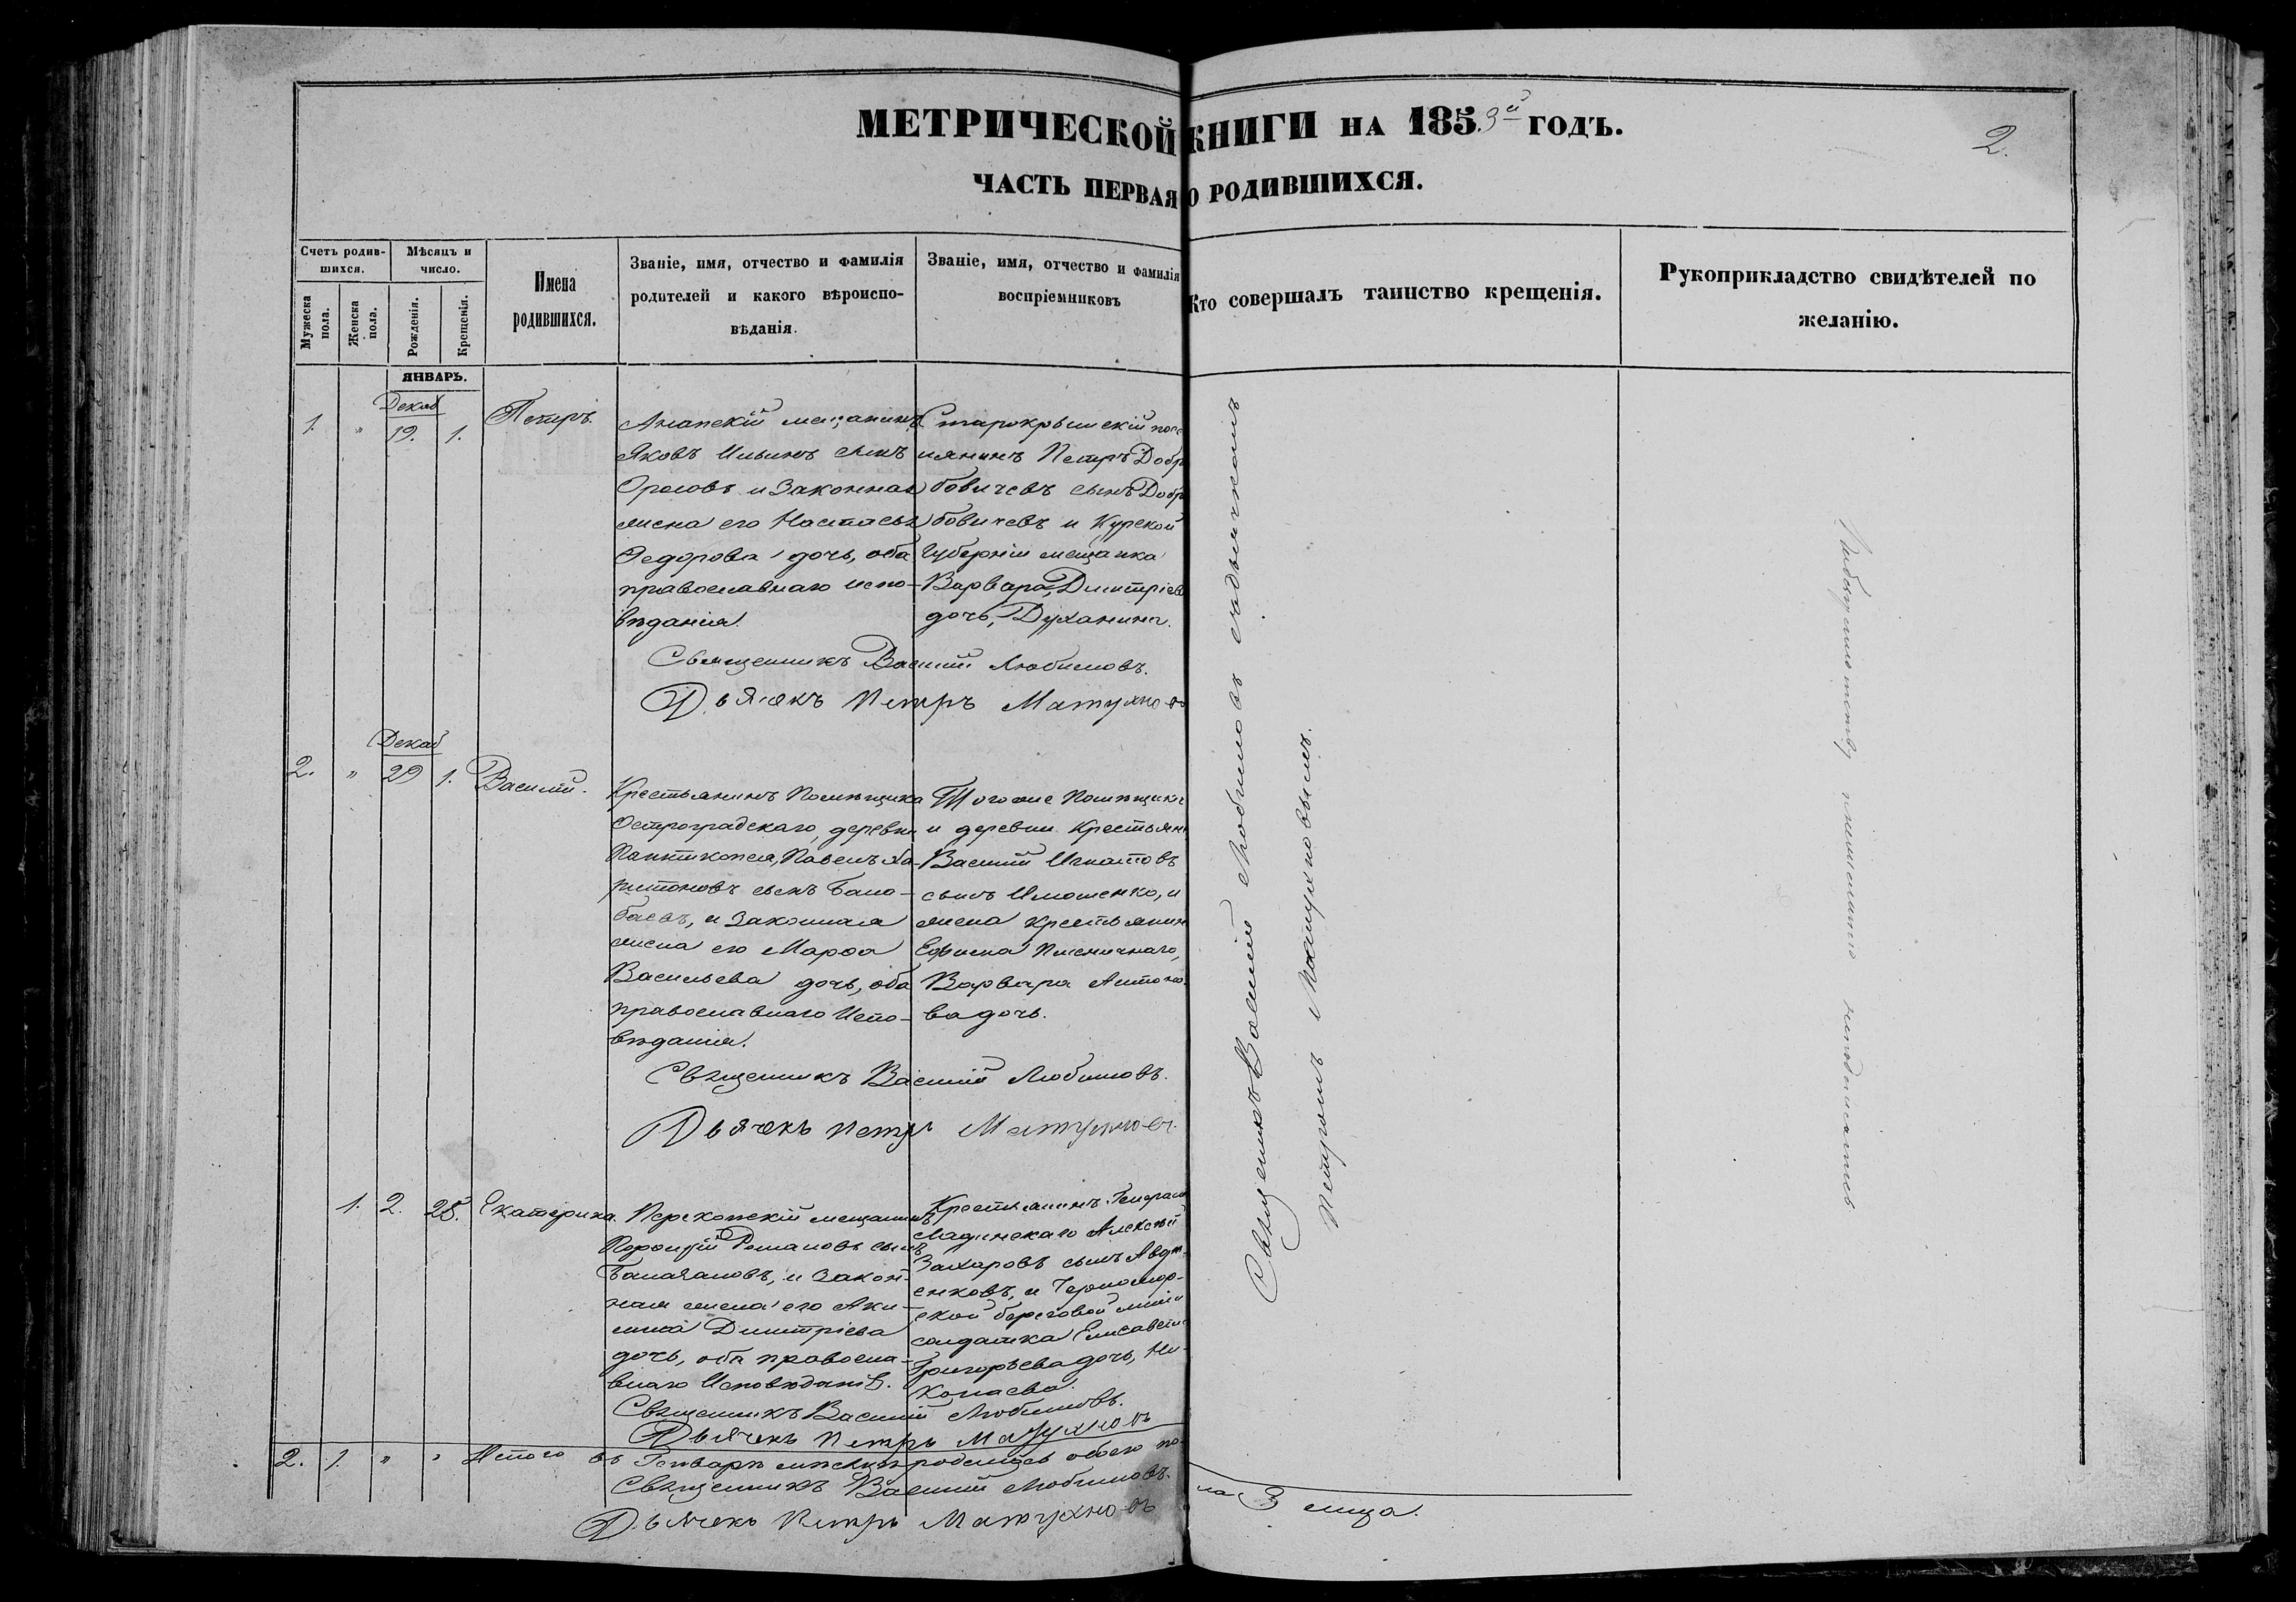 МЕТРИЧЕСКОЙ КНИГИ НА 1859й ГОДЪ.
2.
ЧАСТЬ ПЕРВАЯ О РОДИВШИХСЯ.
Счетъ родив-
шихся.
Мужеска
пола.
Женска
пола.
Мѣсяцъ и
число.
Рожденія.
Крещенія.
Имена
родившихся.
Званіе, имя, отчество и фамилія
родителей и какого вѣроиспо-
вѣданія.
Званіе, имя, отчество и фамилія
воспріемниковъ
Кто совершалъ таинство крещенія.
Рукоприкладство свидѣтелей по
желанію.
ЯНВАРЬ.
Декаб
1. " 19. 1. Петръ.
Анапскій мещанинъ
Яковъ Ильинъ сынъ
Орловъ и Законная
жена его Настасья
Федорова дочь, оба
православнаго испо-
вѣданія.
Старокрымскій посе
лянинъ Петръ Добр
бовичевъ сынъ Добр
бовичевъ и Курской
Губерніи мещанка
Варвара Дмитріева
дочь, Духанина.
Священникъ Василій Любимовъ.
Дьячекъ Петръ Матухновъ
Декаб
2. " 29 1. Василій.
Крестьянинъ Помѣщика
Остроградскаго, деревни
Пантикопея, Павелъ Ха-
ритоновъ сынъ Бало-
баевъ, и Законная
жена его Марфа
Васильева дочь, оба
православнаго Испо-
вѣданія.
Того же Помѣщика
и деревни Крестьян
Василій Игнатовъ
сынъ и
жена Крестьянин
Ефима Пшеничнаго,
Варвара Антоно-
ва дочь.
Священникъ Василій Любимовъ.
Дьячекъ Петръ Матухновъ.
1. 2. 25. Екатерина.
Перекопскій мещанинъ
Романовъ сынъ
и Закон-
ная жена его Аку-
лина Дмитріева
дочь, оба правосла-
внаго Исповѣданія.
Крестьянинъ Генерала
Ладинскаго Алексѣй
Захаровъ сынъ Авдѣ-
енковъ, и Черномор-
ской береговой линіи
солдатка Елисавета
Григорьева дочь, Ни-
колаева.
Священникъ Василій Любимовъ.
Дьячекъ Петръ Матухновъ
2. 1. " " Итого въ Генварѣ мѣсяцѣ родилось обоего по-
ла 3 лица.
Священникъ Василій Любимовъ.
Дьячекъ Петръ Матухновъ
Священникъ Василій Любимовъ съ дьячкомъ
Петромъ Матухновымъ.